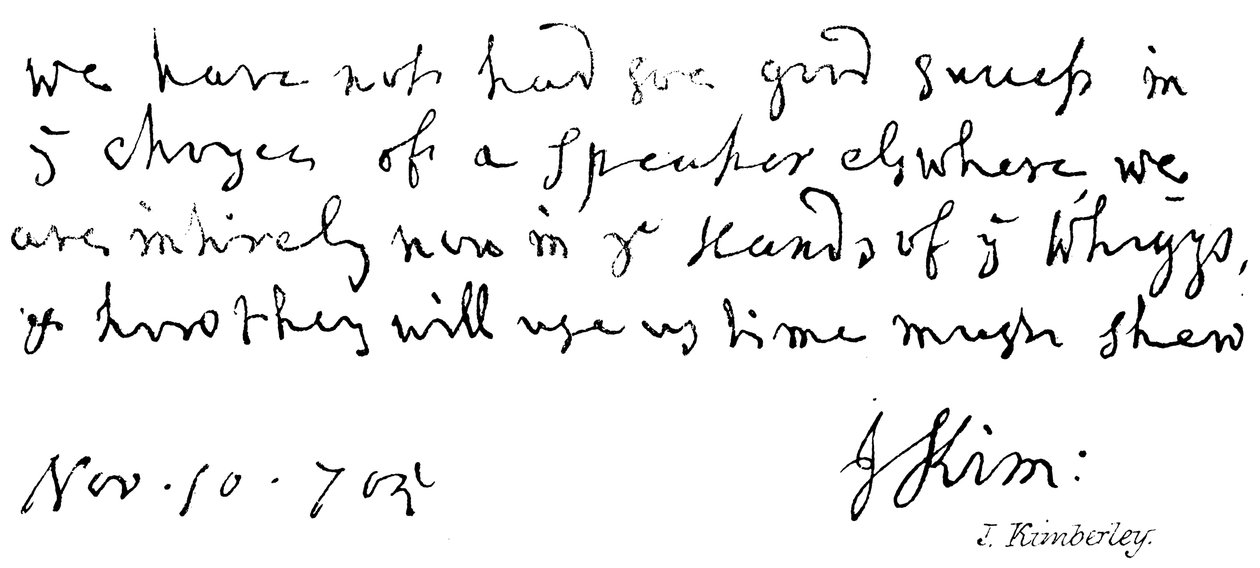 we have not had soe good success in
ye choyce of a speaker elswhere, we
are intirely now in ye Hands of ye Whiggs,
& how they will use us time must shew
J Kim:
Nov. 10. 705
J. Kimberley.